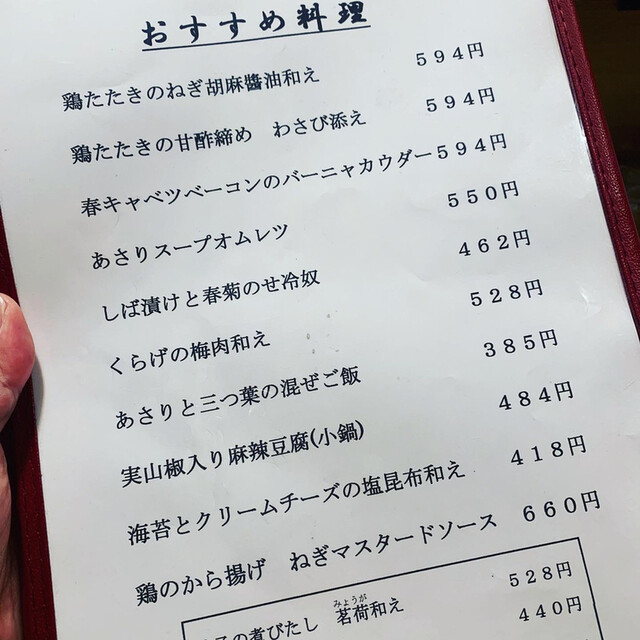 おすすめ料理
鶏たたきのねぎ胡麻醬油和え　５９４円
鶏たたきの甘酢締め　わさび添え　５９４円
春キャベツベーコンのバーニャカウダー５９４円
あさりスープオムレツ　５５０円
しば漬けと春菊のせ冷奴　４６２円
くらげの梅肉和え　５２８円
あさりと三つ葉の混ぜご飯　３８５円
実山椒入り麻辣豆腐(小鍋)　４８４円
海苔とクリームチーズの塩昆布和え　４１８円
鶏のから揚げ　ねぎマスタードソース　６６０円
みょうが
の煮びたし　茗荷和え　５２８円
４４０円